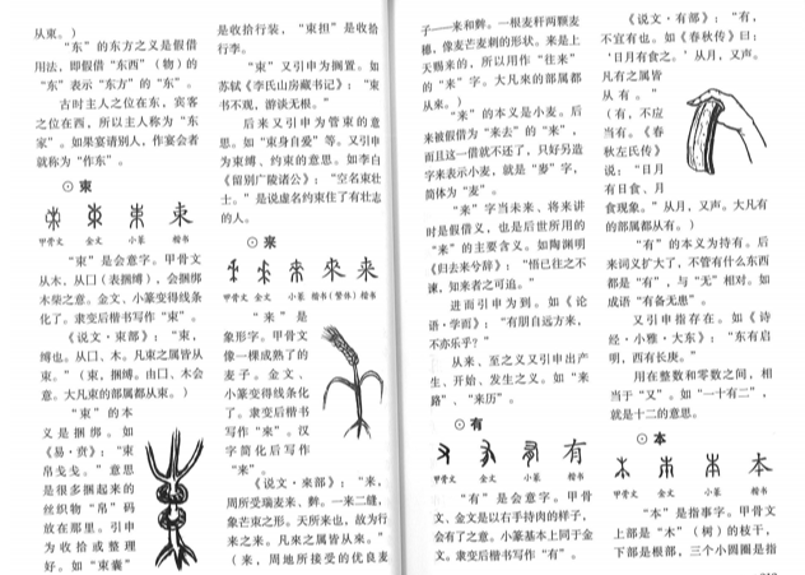 从東。）
“东”的东方之义是假借
用法，即假借“东西”（物）的
“东”表示“东方”的“东”。
古时主人之位在东，宾客
之位在西，所以主人称为“东
家”。如果宴请别人，作宴会者
就称为“作东”。
⊙束
甲骨文 金文 小篆 楷书
“束”是会意字。甲骨文
从木，从囗（表捆缚），会捆绑
木柴之意。金文、小篆变得线条
化了。隶变后楷书写作“束”。
《说文·束部》：“束，
缚也。从囗、木。凡束之属皆从
束。”（束，捆缚。由囗、木会
意。大凡束的部属都从束。）
“束”的本
义是捆绑。如
《易·贲》：“束
帛戋戋。”意思
是很多捆起来的
丝织物“帛”码
放在那里。引申
为收拾或整理
好。如“束囊”
是收拾行装，“束担”是收拾
行李。
“束”又引申为搁置。如
苏轼《李氏山房藏书记》：“束
书不观，游谈无根。”
后来又引申为管束的意
思。如“束身自爱”等。又引申
为束缚、约束的意思。如李白
《留别广陵诸公》：“空名束壮
士。”是说虚名约束住了有壮志
的人。
⊙来
甲骨文 金文 小篆 楷书（繁体）楷书
“来”是
象形字。甲骨文
像一棵成熟了的
麦子。金文、
小篆变得线条化
了。隶变后楷书
写作“來”。汉
字简化后写作
“来”。
《说文·來部》：“来，
周所受瑞麦来、麰。一来二缝，
象芒朿之形。天所来也，故为行
来之来。凡來之属皆从來。”
（来，周地所接受的优良麦
子——来和麰。一根麦秆两颗麦
穗，像麦芒麦刺的形状。来是上
天赐来的，所以用作“往来”
的“来”字。大凡來的部属都
从來。）
“来”的本义是小麦。后
来被假借为“来去”的“来”，
而且这一借就不还了，只好另造
字来表示小麦，就是“麥”字，
简体为“麦”。
“来”字当未来、将来讲
时是假借义，也是后世所用的
“来”的主要含义。如陶渊明
《归去来兮辞》：“悟已往之不
谏，知来者之可追。”
进而引申为到。如《论
语·学而》：“有朋自远方来，
不亦乐乎？”
从来、至之义又引申出产
生、开始、发生之义。如“来
路”、“来历”。
⊙有
甲骨文 金文 小篆 楷书
“有”是会意字。甲骨
文、金文是以右手持肉的样子，
会有了之意。小篆基本上同于金
文。隶变后楷书写作“有”。
《说文·有部》：“有，
不宜有也。如《春秋传》曰：
‘日月有食之。’从月，又声。
凡有之属皆
从有。”
（有，不应
当有。《春
秋左氏传》
说：“日月
有日食、月
食现象。”从月，又声。大凡有
的部属都从有。）
“有”的本义为持有。后
来词义扩大了，不管有什么东西
都是“有”，与“无”相对。如
成语“有备无患”。
又引申指存在。如《诗
经·小雅·大东》：“东有启
明，西有长庚。”
用在整数和零数之间，相
当于“又”。如“一十有二”，
就是十二的意思。
⊙本
甲骨文 金文 小篆 楷书
“本”是指事字。甲骨文
上部是“木”（树）的枝干，
下部是根部，三个小圆圈是指